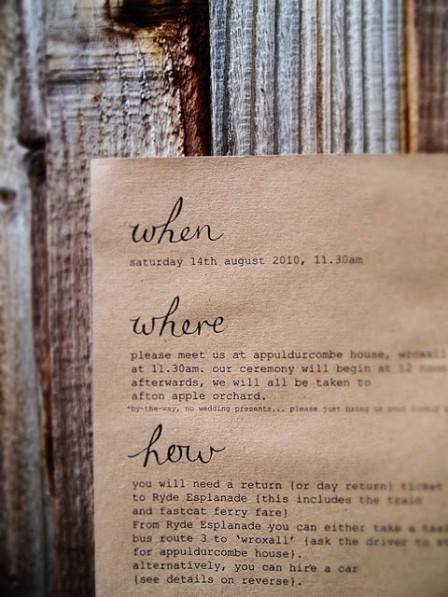 when
saturday 14th august 2010, 11.30am
where
please meet us at appuldurcombe house, wroxall
at 11.30am. our ceremony will begin at 12 noon
afterwards, we will all be taken to
afton apple orchard.
*by-the-way, no wedding presents... please just bring us your lovely
how
you will need a return {or day return} ticket
to Ryde Esplanade {this includes the train
and fastcat ferry fare}
From Ryde Esplanade you can either take a taxi
bus route 3 to 'wroxall' {ask the driver to
for appuldurcombe house}.
alternatively, you can hire a car
{see details on reverse}.